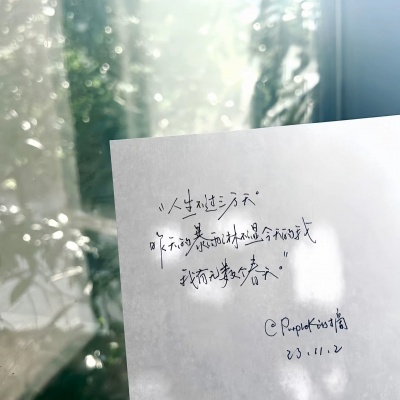 “人生不过三万天”
昨天的暴雨淋不湿今天的我
我有无数个春天。”
@Purple
23.11.2